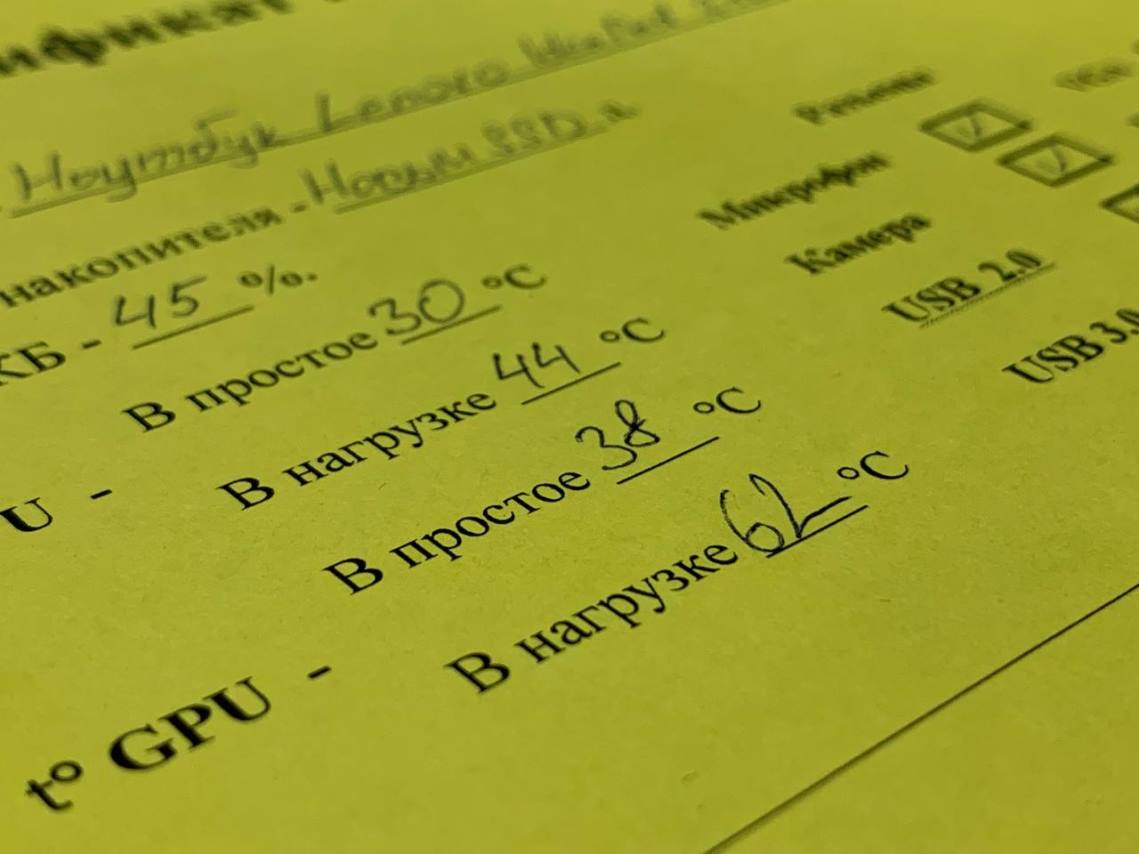 ификат
Ноутбук Lenovo
накопителя - Новый SSD
КБ - 45 %.
В простое 30 °C
U - В нагрузке 44 °C
В простое 38 °C
t° GPU - В нагрузке 62 °C
Микрофон
Камера
USB 2.0
USB 3.0